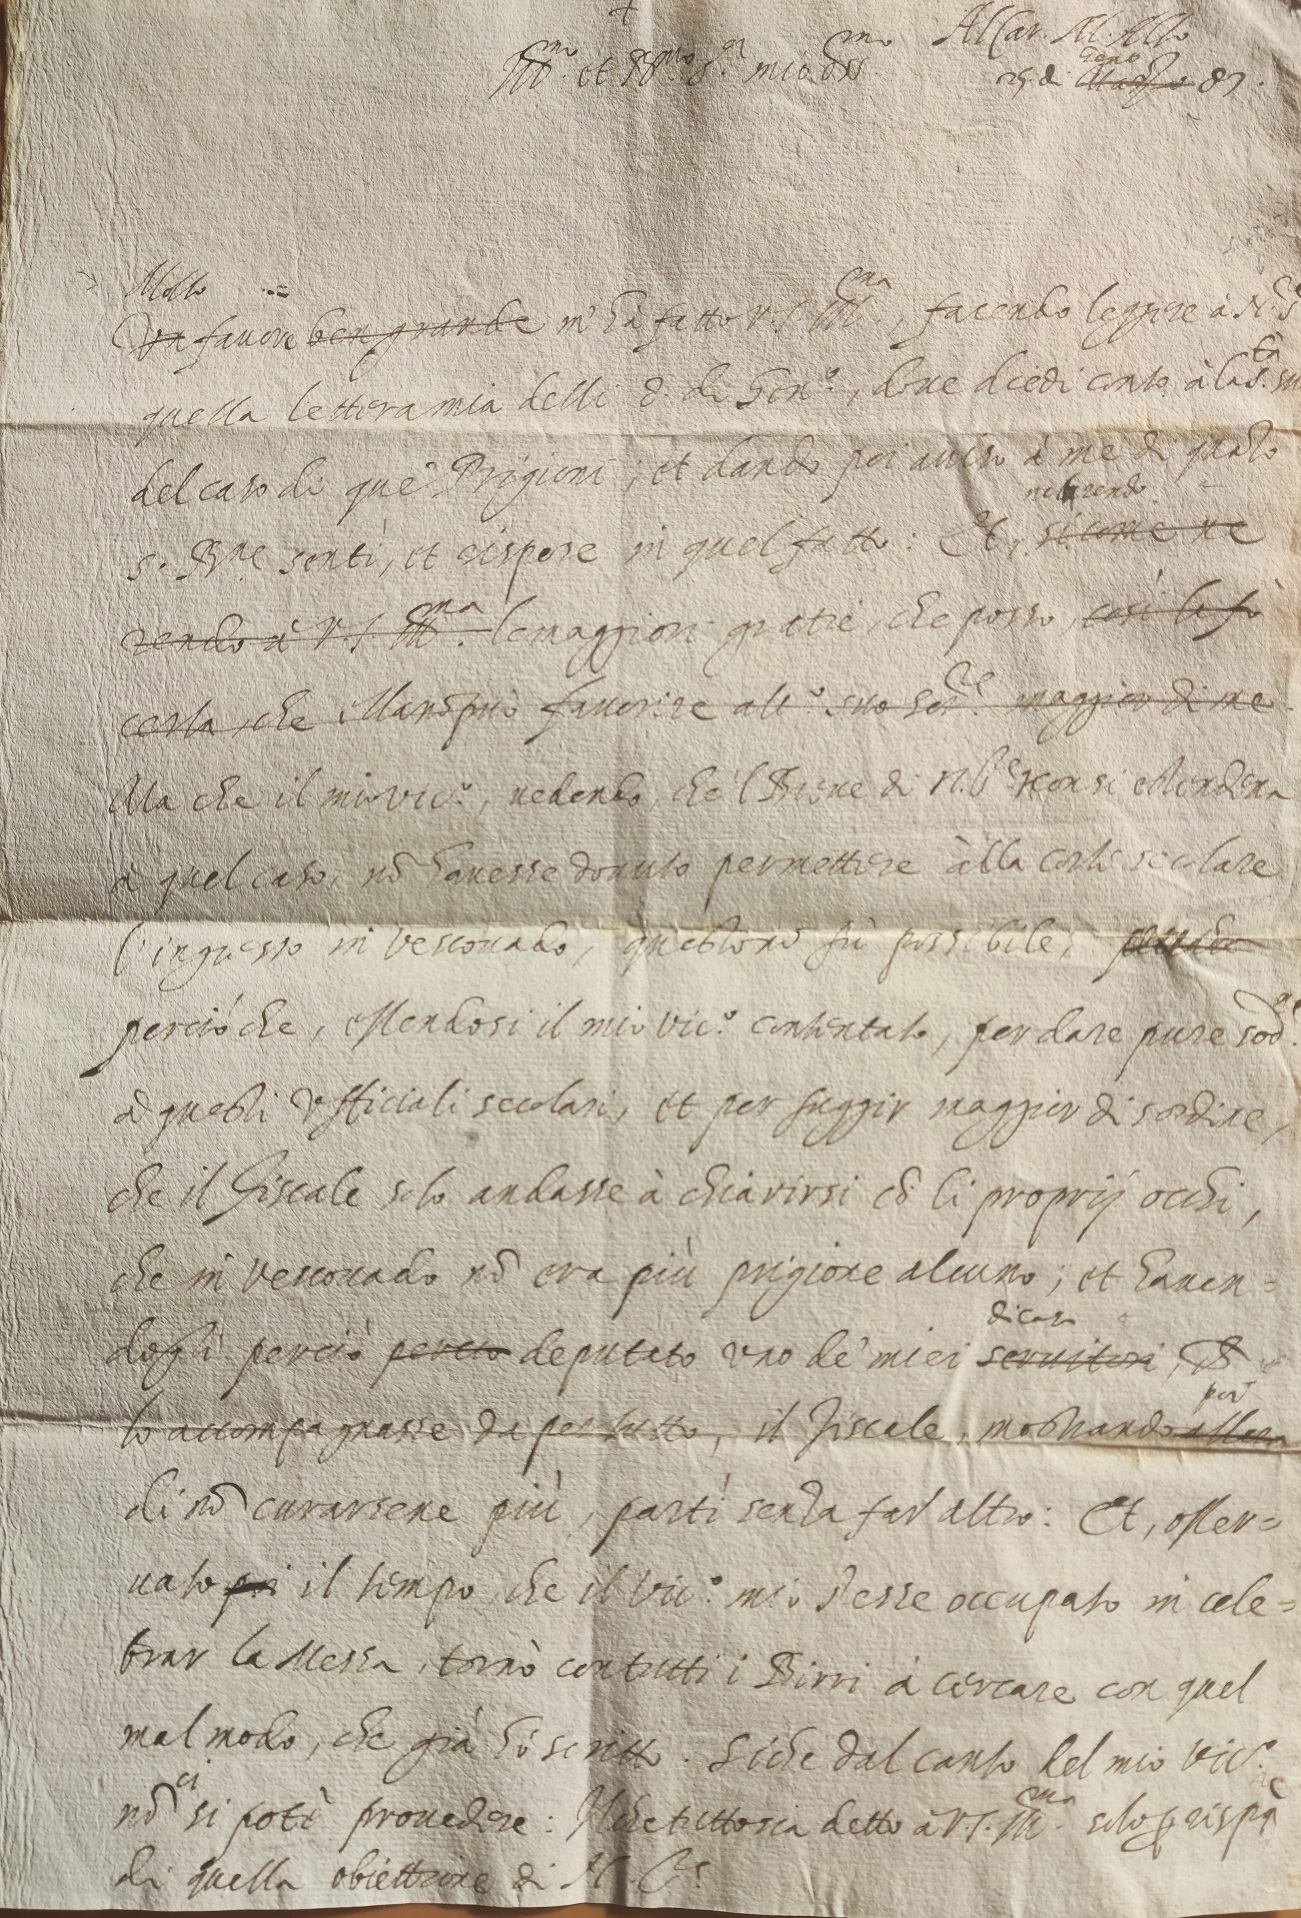 Al Car. M. Alto
Ill.mo et R.mo S.or mio Oss.mo
25 di Marzo 87.
Geno
Molto
Un favore ben grande m'hà fatto V.S. Ill.ma, facendo leggere à N.S.
quella lettera mia delli 8. di Gen.o, dove diedi conto à la S.tà sua
del caso di que' Prigioni; et dando poi aviso à me di quanto
rendendo
S. B.ne sentì, et rispose in quel fatto. Et, si come ne
rendo à V.S. Ill.ma le maggiori gratie, che posso, così la fò
certa, che non può favorire alt.o suo ser.re maggior di me
Ma che il mio vic.o, vedendo, che'l Breve di N.S.re non si estendeva
à quel caso, nõ havesse dovuto permettere àlla corte secolare
l'ingresso in vescovado, questo nõ fù possibile;
perciò che, essendosi il mio vic.o contentato, per dare pure sod.ne
à questi Ufficiali secolari, et per fuggir maggior disordine,
che il Fiscale solo andasse à chiarirsi cõ li proprij occhi,
che in vescovado nõ era più prigione alcuno; et haven=
di casa
dogli perciò perciò deputato uno de' miei servitori,
però
lo accompagnasse da per tutto, il Fiscale, mostrando allora
di nõ curarsene più, partì senza far altro: Et, osser=
vato poi il tempo, che il vic.o mio stesse occupato in cele=
brar la Messa, tornò con tutti i Birri à cercare con quel
mal modo, che già hò scritto. Siche dal canto del mio vic.o
ci
nõ si potè provedere: Il che tutto sia detto à V.S. Ill.ma solo p risp.ta
di quella obiettione di N.S.re